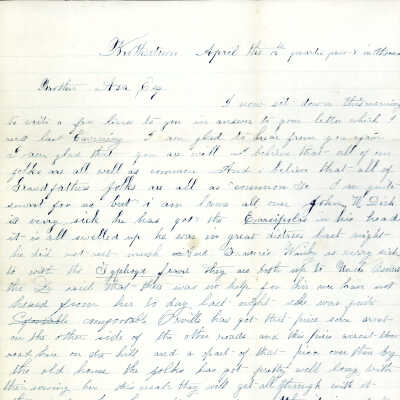 April the
Brother Asa Esq
I now sit down this morning
to write a few lines to you in answer to your letter which I
recd last Evening I am glad to hear from you again
I am glad that you are well and I believe that all of our
folks are all well as common And I believe that all of
Grandfathers folks are all as common So I am quite
smart for me but i am lame all over John W Dick
is very sick he has got the Erresipelas in his head
it is all swelled up he was in great distress last night
he did not rest much And is very sick
to with the fever they are both up to Uncle
the Dr said that there was no help for him we have not
heard from her to day last night she was quite
comfortable has got that piece sown
on the other side of the other road and this piece
on the hill and a part of that piece over there by
the old house the folks has got pretty well along with
their sowing here this week they will get all through with it